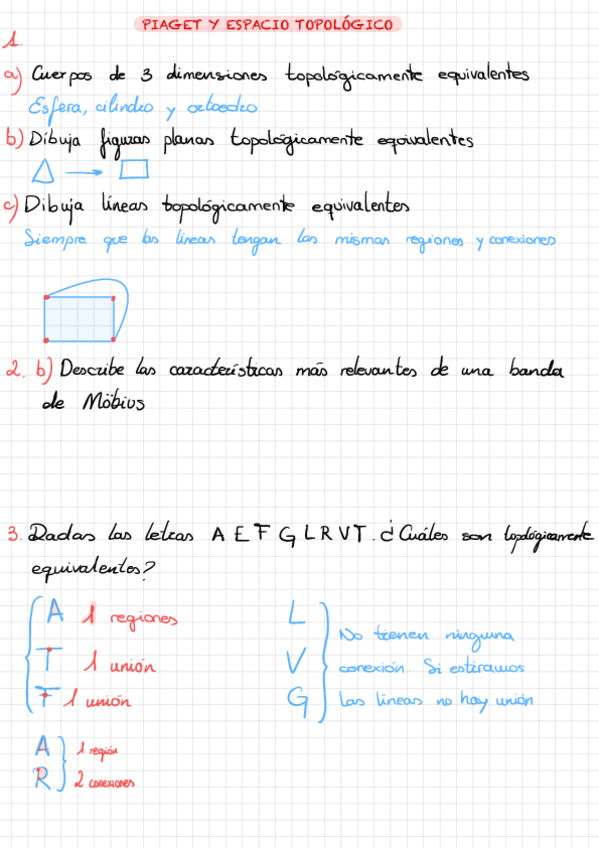 PIAGET Y ESPACIO TOPOLÓGICO
1.
a) Cuerpos de 3 dimensiones topológicamente equivalentes
Esfera, cilindro y octoedro
b) Dibuja figuras planas topológicamente equivalentes
c) Dibuja líneas topológicamente equivalentes
Siempre que las líneas tengan las mismas regiones y conexiones
2. b) Describe las características más relevantes de una banda
de Möbius
3. Dadas las letras A E F G L R V T. ¿Cuáles son topológicamente
equivalentes?
A 1 regiones
T 1 unión
F 1 unión
L
V
G
No tienen ninguna
conexión. Si estiramos
las líneas no hay unión
A 1 región
R 2 conexiones